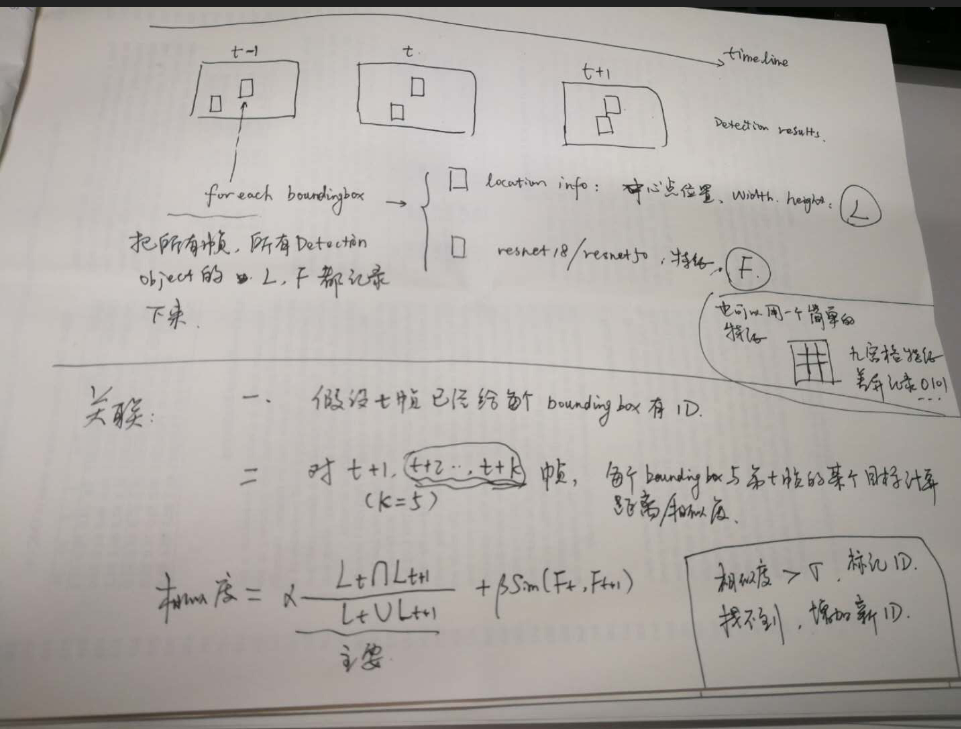 timeline
t-1
t
t+1
Detection results.
for each boundingbox
location info: 中心点位置、width. height: L
resnet18/resnet50, 特征. F
把所有帧, 所有Detection
object的 L, F 都记录
下来.
也可以用一个简单的
特征
九宫格特征
差异记录0101...
关联:
一. 假设t帧已经给每个 bounding box 有 ID.
二 对 t+1, t+2 ..., t+k 帧, 每个bounding box与第t帧的某个目标计算
(K=5)
距离/相似度.
相似度 = α Lt∩Lt+1 / Lt∪Lt+1 + βSim(Ft, Ft+1)
主要
相似度 > T, 标记ID.
找不到, 增加新ID.